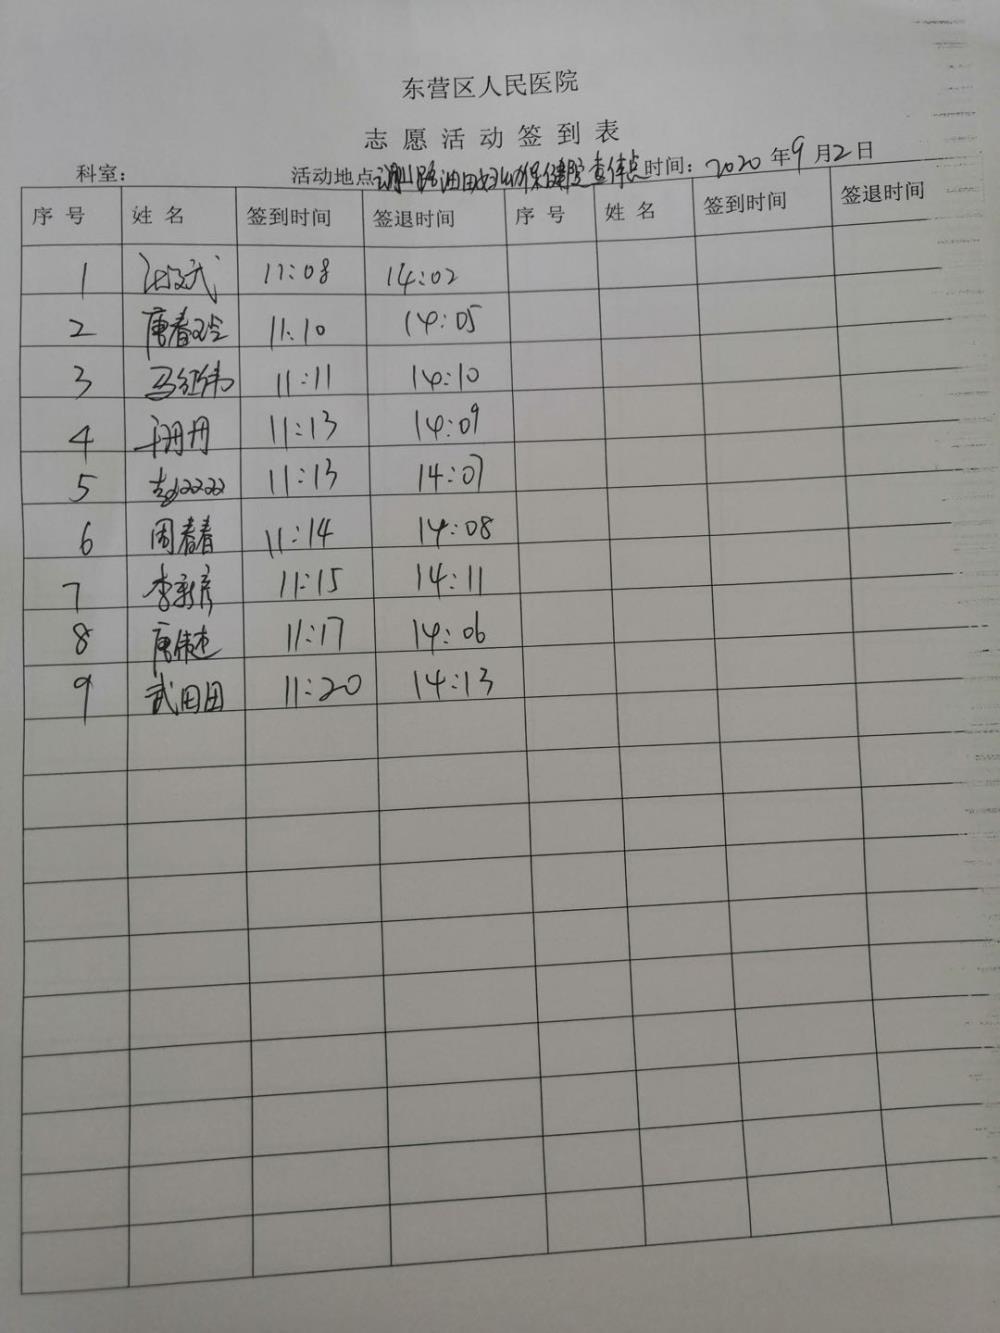 东营区人民医院
志愿活动签到表
科室： 活动地点 油田妇幼保健院查体点 时间：2020年9月2日
序号 姓名 签到时间 签退时间 序号 姓名 签到时间 签退时间
1 11:08 14:02
2 唐春玲 11:10 14:05
3 马红伟 11:11 14:10
4 丹丹 11:13 14:09
5 赵双双 11:13 14:07
6 周春春 11:14 14:08
7 李新彦 11:15 14:11
8 唐伟杰 11:17 14:06
9 武团团 11:20 14:13